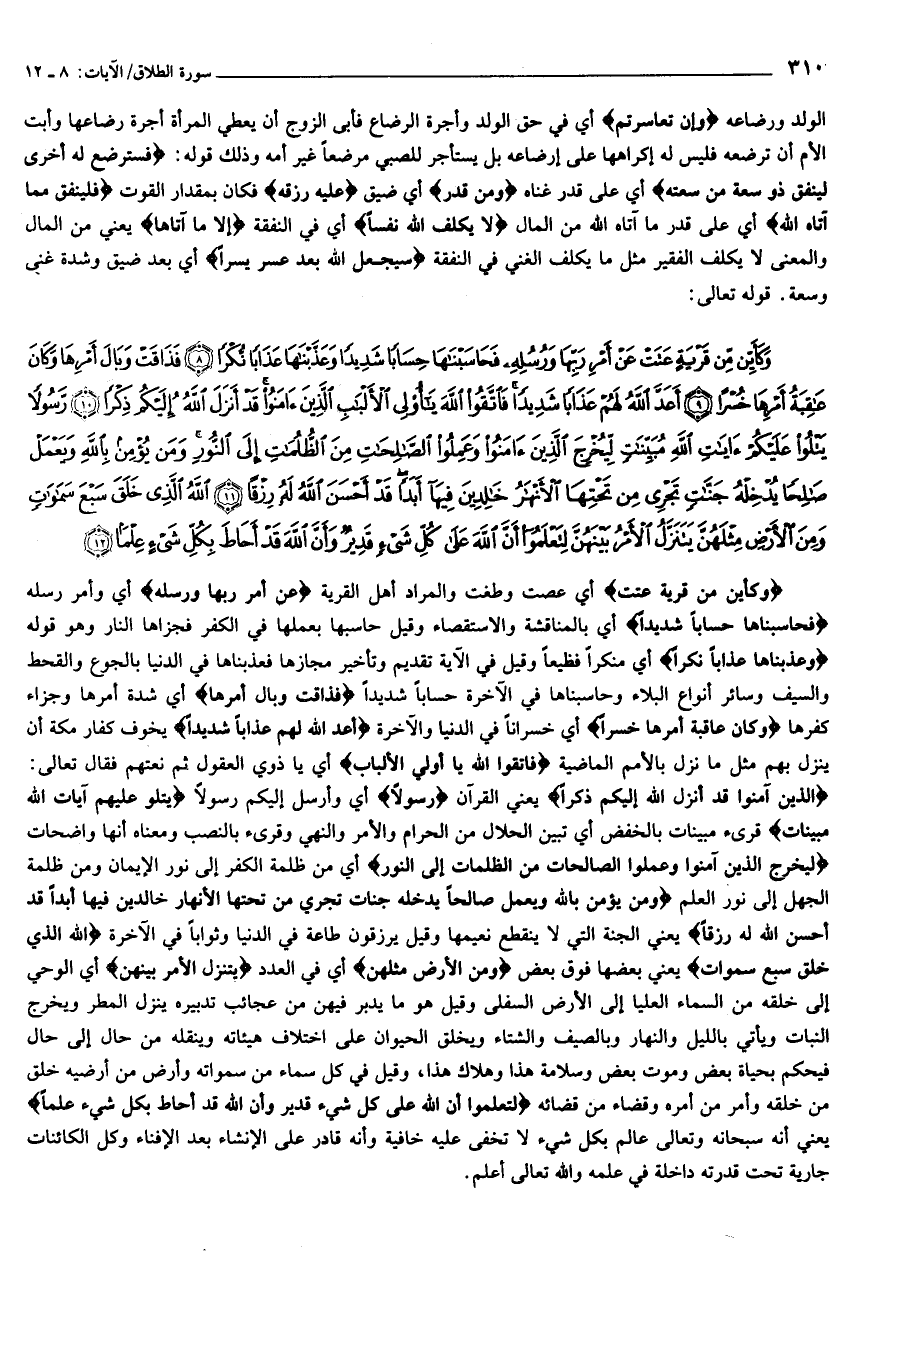 ٣١٠ سورة الطلاق/ الآيات: ٨ ـ ١٢
الولد ورضاعه ﴿وإن تعاسرتم﴾ أي في حق الولد وأجرة الرضاع فأبى الزوج أن يعطي المرأة أجرة رضاعها وأبت
الأم أن ترضعه فليس له إكراهها على إرضاعه بل يستأجر للصبي مرضعاً غير أمه وذلك قوله: ﴿فسترضع له أخرى
لينفق ذو سعة من سعته﴾ أي على قدر غناه ﴿ومن قدر﴾ أي ضيق ﴿عليه رزقه﴾ فكان بمقدار القوت ﴿فلينفق مما
آتاه الله﴾ أي على قدر ما آتاه الله من المال ﴿لا يكلف الله نفساً﴾ أي في النفقة ﴿إلا ما آتاها﴾ يعني من المال
والمعنى لا يكلف الفقير مثل ما يكلف الغني في النفقة ﴿سيجعل الله بعد عسر يسراً﴾ أي بعد ضيق وشدة غنى
وسعة. قوله تعالى:
وَكَأَيِّن مِّن قَرْيَةٍ عَتَتْ عَنْ أَمْرِ رَبِّهَا وَرُسُلِهِۦ فَحَاسَبْنَٰهَا حِسَابًا شَدِيدًا وَعَذَّبْنَٰهَا عَذَابًا نُّكْرًا ﴿٨﴾ فَذَاقَتْ وَبَالَ أَمْرِهَا وَكَانَ
عَٰقِبَةُ أَمْرِهَا خُسْرًا ﴿٩﴾ أَعَدَّ ٱللَّهُ لَهُمْ عَذَابًا شَدِيدًا ۖ فَٱتَّقُوا۟ ٱللَّهَ يَٰٓأُو۟لِى ٱلْأَلْبَٰبِ ٱلَّذِينَ ءَامَنُوا۟ ۚ قَدْ أَنزَلَ ٱللَّهُ إِلَيْكُمْ ذِكْرًا ﴿١٠﴾ رَّسُولًا
يَتْلُوا۟ عَلَيْكُمْ ءَايَٰتِ ٱللَّهِ مُبَيِّنَٰتٍ لِّيُخْرِجَ ٱلَّذِينَ ءَامَنُوا۟ وَعَمِلُوا۟ ٱلصَّٰلِحَٰتِ مِنَ ٱلظُّلُمَٰتِ إِلَى ٱلنُّورِ ۚ وَمَن يُؤْمِنۢ بِٱللَّهِ وَيَعْمَلْ
صَٰلِحًا يُدْخِلْهُ جَنَّٰتٍ تَجْرِى مِن تَحْتِهَا ٱلْأَنْهَٰرُ خَٰلِدِينَ فِيهَآ أَبَدًا ۖ قَدْ أَحْسَنَ ٱللَّهُ لَهُۥ رِزْقًا ﴿١١﴾ ٱللَّهُ ٱلَّذِى خَلَقَ سَبْعَ سَمَٰوَٰتٍ
وَمِنَ ٱلْأَرْضِ مِثْلَهُنَّ يَتَنَزَّلُ ٱلْأَمْرُ بَيْنَهُنَّ لِتَعْلَمُوٓا۟ أَنَّ ٱللَّهَ عَلَىٰ كُلِّ شَىْءٍ قَدِيرٌ وَأَنَّ ٱللَّهَ قَدْ أَحَاطَ بِكُلِّ شَىْءٍ عِلْمًا ﴿١٢﴾
﴿وكأين من قرية عتت﴾ أي عصت وطغت والمراد أهل القرية ﴿عن أمر ربها ورسله﴾ أي وأمر رسله
﴿فحاسبناها حساباً شديداً﴾ أي بالمناقشة والاستقصاء وقيل حاسبها بعملها في الكفر فجزاها النار وهو قوله
﴿وعذبناها عذاباً نكراً﴾ أي منكراً فظيعاً وقيل في الآية تقديم وتأخير مجازها فعذبناها في الدنيا بالجوع والقحط
والسيف وسائر أنواع البلاء وحاسبناها في الآخرة حساباً شديداً ﴿فذاقت وبال أمرها﴾ أي شدة أمرها وجزاء
كفرها ﴿وكان عاقبة أمرها خسراً﴾ أي خسراناً في الدنيا والآخرة ﴿أعد الله لهم عذاباً شديداً﴾ يخوف كفار مكة أن
ينزل بهم مثل ما نزل بالأمم الماضية ﴿فاتقوا الله يا أولي الألباب﴾ أي يا ذوي العقول ثم نعتهم فقال تعالى:
﴿الذين آمنوا قد أنزل الله إليكم ذكراً﴾ يعني القرآن ﴿رسولاً﴾ أي وأرسل إليكم رسولاً ﴿يتلو عليهم آيات الله
مبينات﴾ قرىء مبينات بالخفض أي تبين الحلال من الحرام والأمر والنهي وقرىء بالنصب ومعناه أنها واضحات
﴿ليخرج الذين آمنوا وعملوا الصالحات من الظلمات إلى النور﴾ أي من ظلمة الكفر إلى نور الإيمان ومن ظلمة
الجهل إلى نور العلم ﴿ومن يؤمن بالله ويعمل صالحاً يدخله جنات تجري من تحتها الأنهار خالدين فيها أبداً قد
أحسن الله له رزقاً﴾ يعني الجنة التي لا ينقطع نعيمها وقيل يرزقون طاعة في الدنيا وثواباً في الآخرة ﴿الله الذي
خلق سبع سموات﴾ يعني بعضها فوق بعض ﴿ومن الأرض مثلهن﴾ أي في العدد ﴿يتنزل الأمر بينهن﴾ أي الوحي
إلى خلقه من السماء العليا إلى الأرض السفلى وقيل هو ما يدبر فيهن من عجائب تدبيره ينزل المطر ويخرج
النبات ويأتي بالليل والنهار وبالصيف والشتاء ويخلق الحيوان على اختلاف هيئاته وينقله من حال إلى حال
فيحكم بحياة بعض وموت بعض وسلامة هذا وهلاك هذا، وقيل في كل سماء من سمواته وأرض من أرضيه خلق
من خلقه وأمر من أمره وقضاء من قضائه ﴿لتعلموا أن الله على كل شيء قدير وأن الله قد أحاط بكل شيء علماً﴾
يعني أنه سبحانه وتعالى عالم بكل شيء لا تخفى عليه خافية وأنه قادر على الإنشاء بعد الإفناء وكل الكائنات
جارية تحت قدرته داخلة في علمه والله تعالى أعلم.